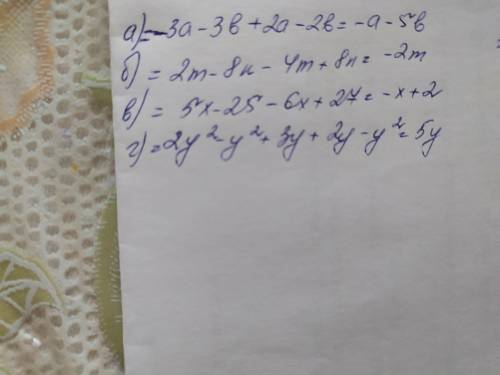 а) = -3a - 3в + 2a - 2в = -a - 5в
б) = 2m - 8n - 4m + 8n = -2m
в) = 5x - 25 - 6x + 27 = -x + 2
г) = 2y² - y² + 3y + 2y - y² = 5y